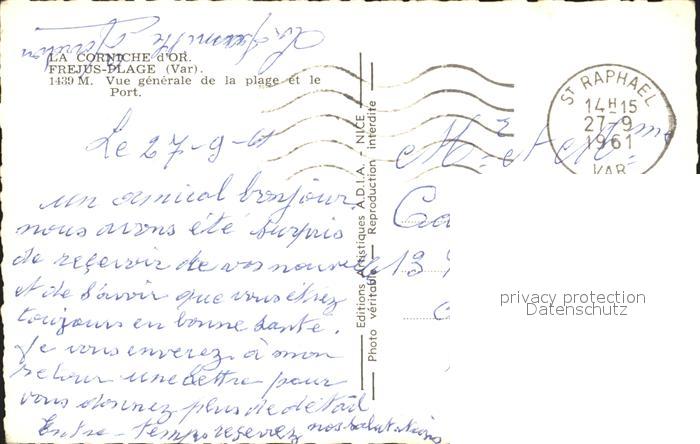 La famille
LA CORNICHE d'OR.
FREJUS-PLAGE (Var).
1439 M. Vue générale de la plage et le
Port.
Le 27-9-61
un amical bonjour.
nous avons été surpris
de reçevoir de vos nouvelle
et de savoir que vous étiez
toujours en bonne santé.
Je vous enverez à mon
retour une lettre pour
vous donnez plus de détail
Entre-temps reçevez nos salutations
Editions Artistiques A.D.I.A. - NICE
Photo véritable - Reproduction interdite
ST RAPHAEL
14H15
27-9
1961
VAR
Mr et Mme
Ca
13
privacy protection
Datenschutz